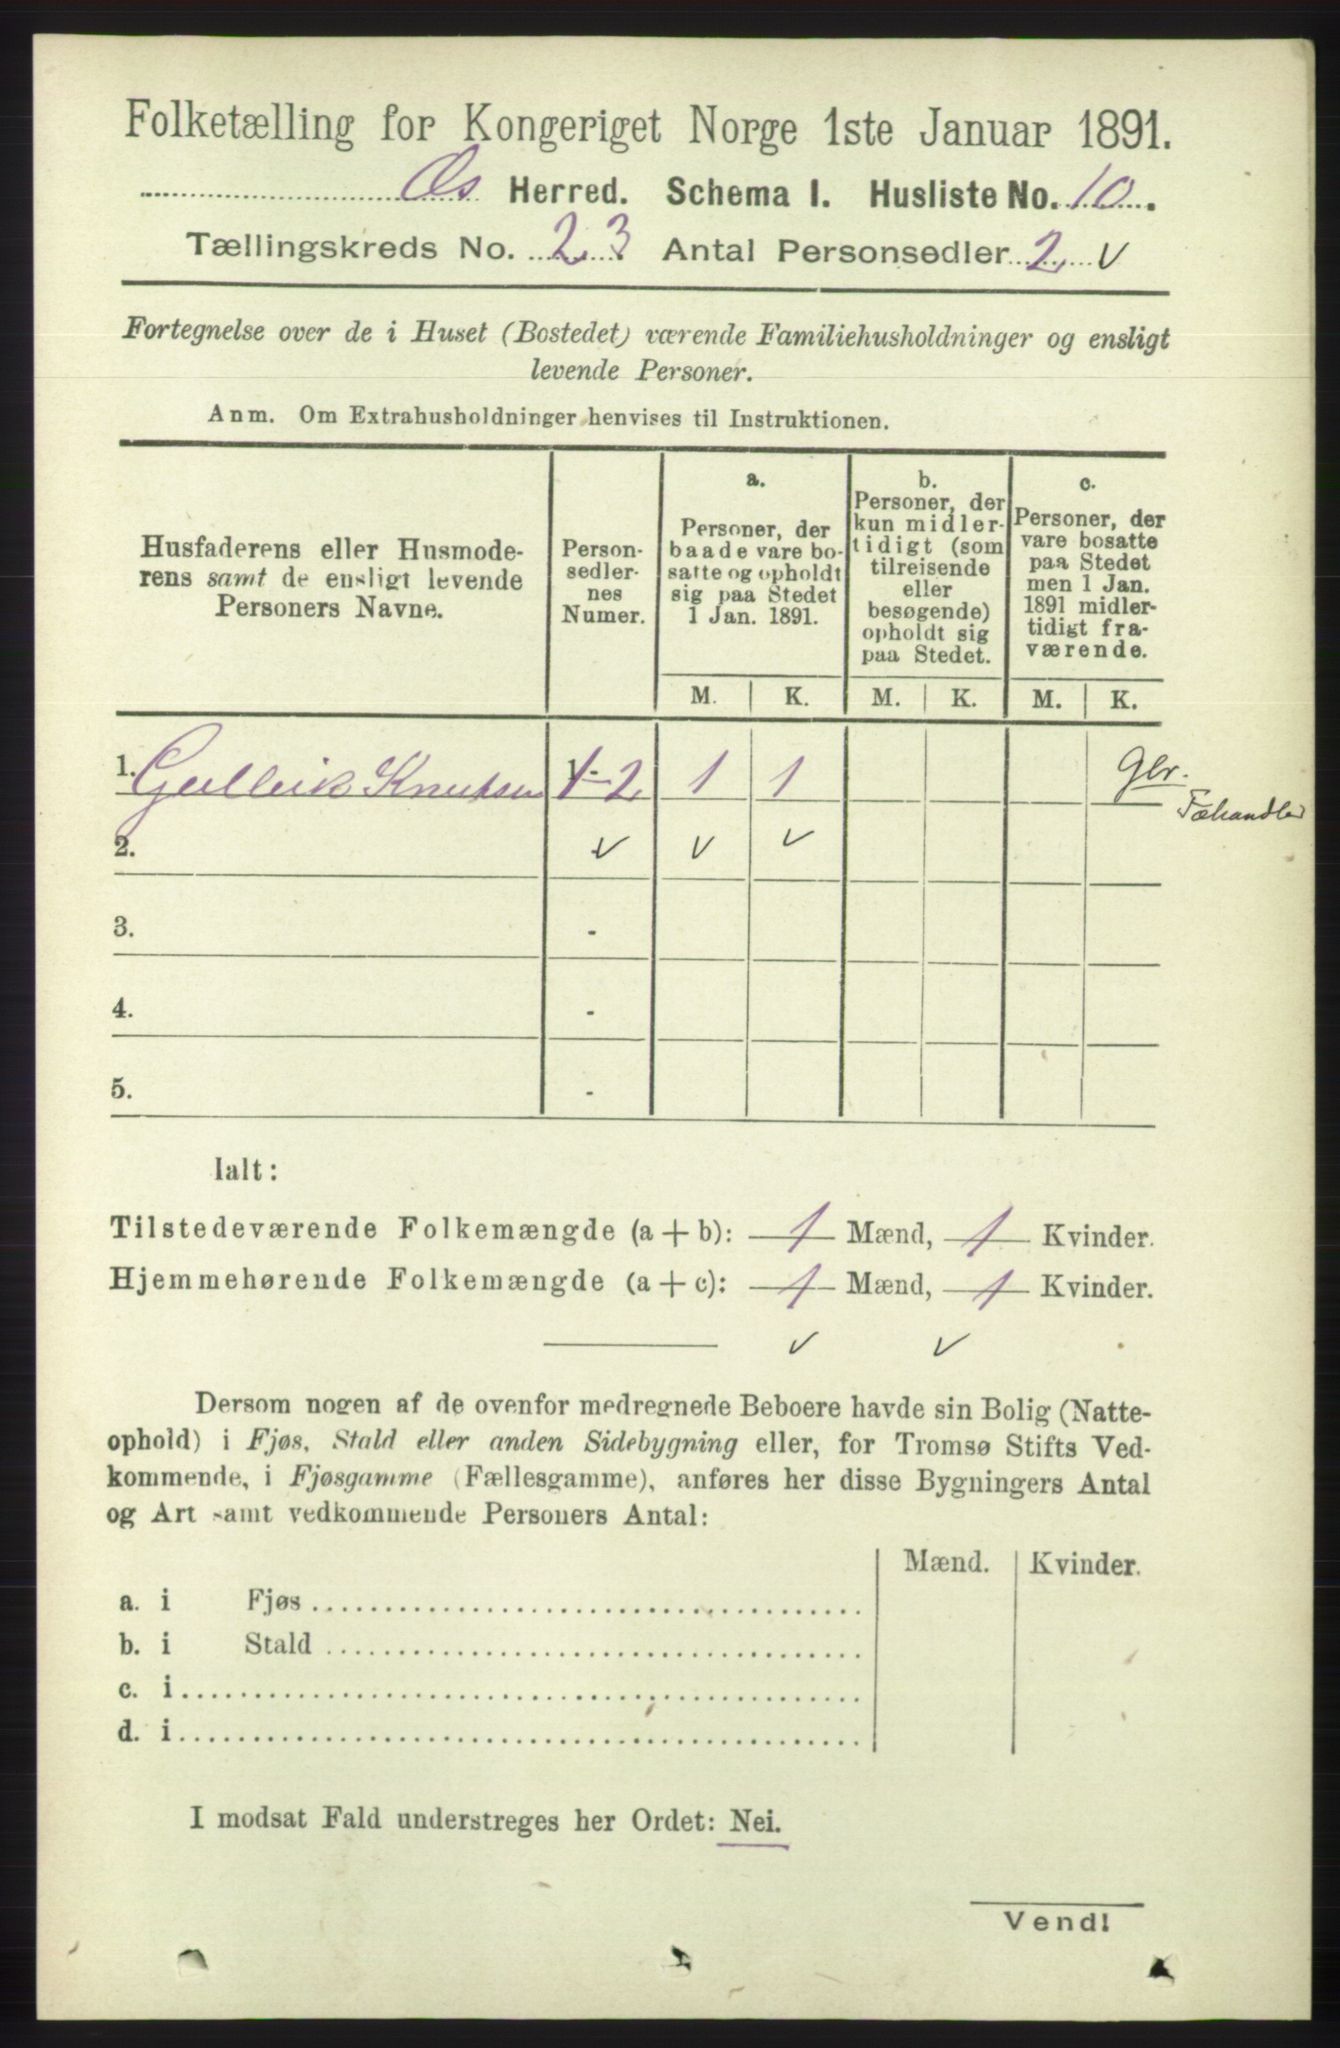 Folketælling for Kongeriget Norge 1ste Januar 1891.
Os Herred. Schema I. Husliste No. 10.
Tællingskreds No. 23. Antal Personsedler 2 v
Fortegnelse over de i Huset (Bostedet) værende Familiehusholdninger og ensligt
levende Personer.
Anm. Om Extrahusholdninger henvises til Instruktionen.
Husfaderens eller Husmode-
rens samt de ensligt levende
Personers Navne.
Person-
sedler-
nes
Numer.
a.
Personer, der
baade vare bo-
satte og opholdt
sig paa Stedet
1 Jan. 1891.
b.
Personer, der
kun midler-
tidigt (som
tilreisende
eller
besøgende)
opholdt sig
paa Stedet.
c.
Personer, der
vare bosatte
paa Stedet
men 1 Jan.
1891 midler-
tidigt fra-
værende.
M. K. M. K. M. K.
1. Gulleik Knutsen 1-2 1 1 Gbr.
Fæhandler
2. v v v
3. -
4. -
5. -
Ialt:
Tilstedeværende Folkemængde (a + b): 1 Mænd, 1 Kvinder.
Hjemmehørende Folkemængde (a + c): 1 Mænd, 1 Kvinder.
v v
Dersom nogen af de ovenfor medregnede Beboere havde sin Bolig (Natte-
ophold) i Fjøs, Stald eller anden Sidebygning eller, for Tromsø Stifts Ved-
kommende, i Fjøsgamme (Fællesgamme), anføres her disse Bygningers Antal
og Art samt vedkommende Personers Antal:
Mænd. Kvinder.
a. i Fjøs
b. i Stald
c. i
d. i
I modsat Fald understreges her Ordet: Nei.
Vend!